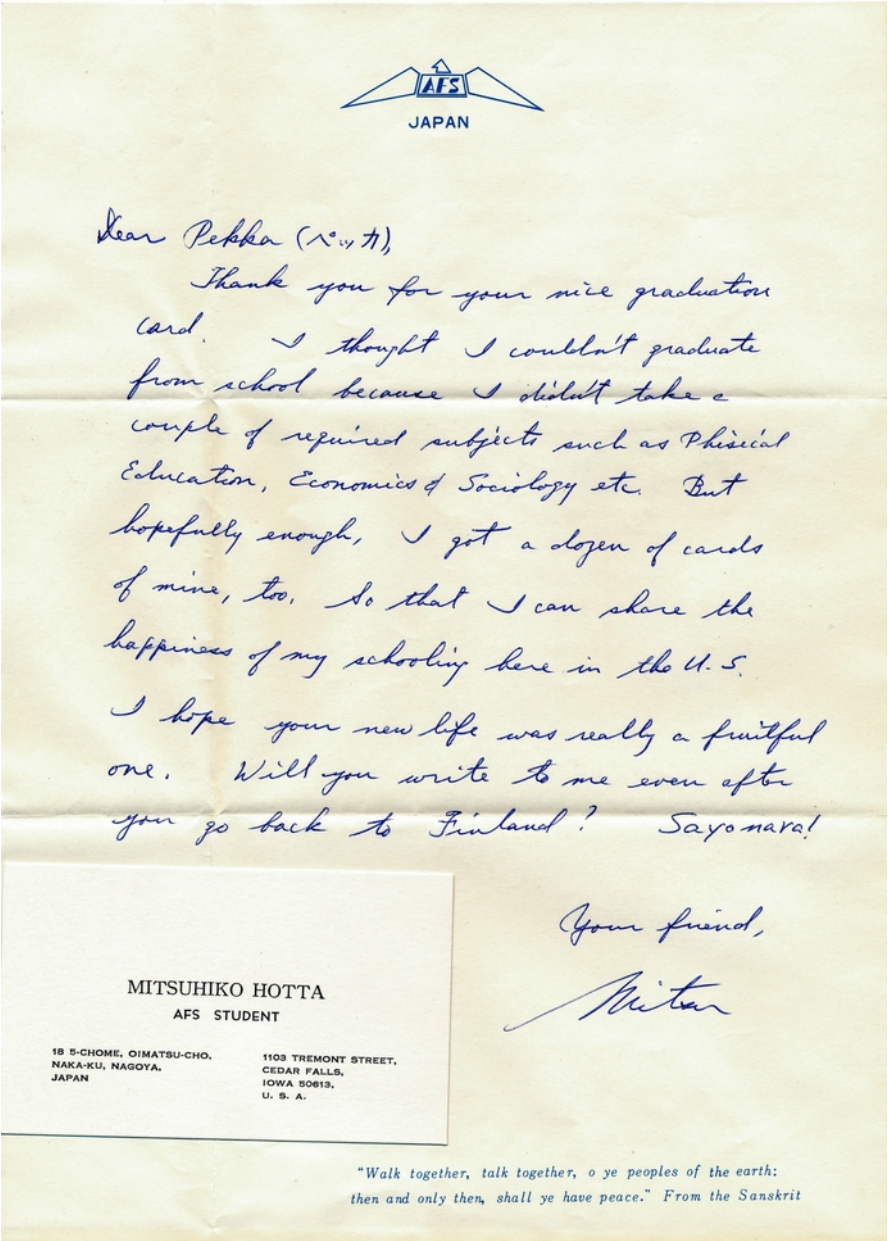 AFS
JAPAN
Dear Pekka (ペッカ),
Thank you for your nice graduation
card. I thought I couldn't graduate
from school because I didn't take a
couple of required subjects such as Phisical
Education, Economics & Sociology etc. But
hopefully enough, I got a dozen of cards
of mine, too. So that I can share the
happiness of my schooling here in the U.S.
I hope your new life was really a fruitful
one. Will you write to me even after
you go back to Finland? Sayonara!
Your friend,
Mitsu
MITSUHIKO HOTTA
AFS STUDENT
18 5-CHOME, OIMATSU-CHO,
NAKA-KU, NAGOYA,
JAPAN
1103 TREMONT STREET,
CEDAR FALLS,
IOWA 50613,
U. S. A.
"Walk together, talk together, o ye peoples of the earth:
then and only then, shall ye have peace." From the Sanskrit